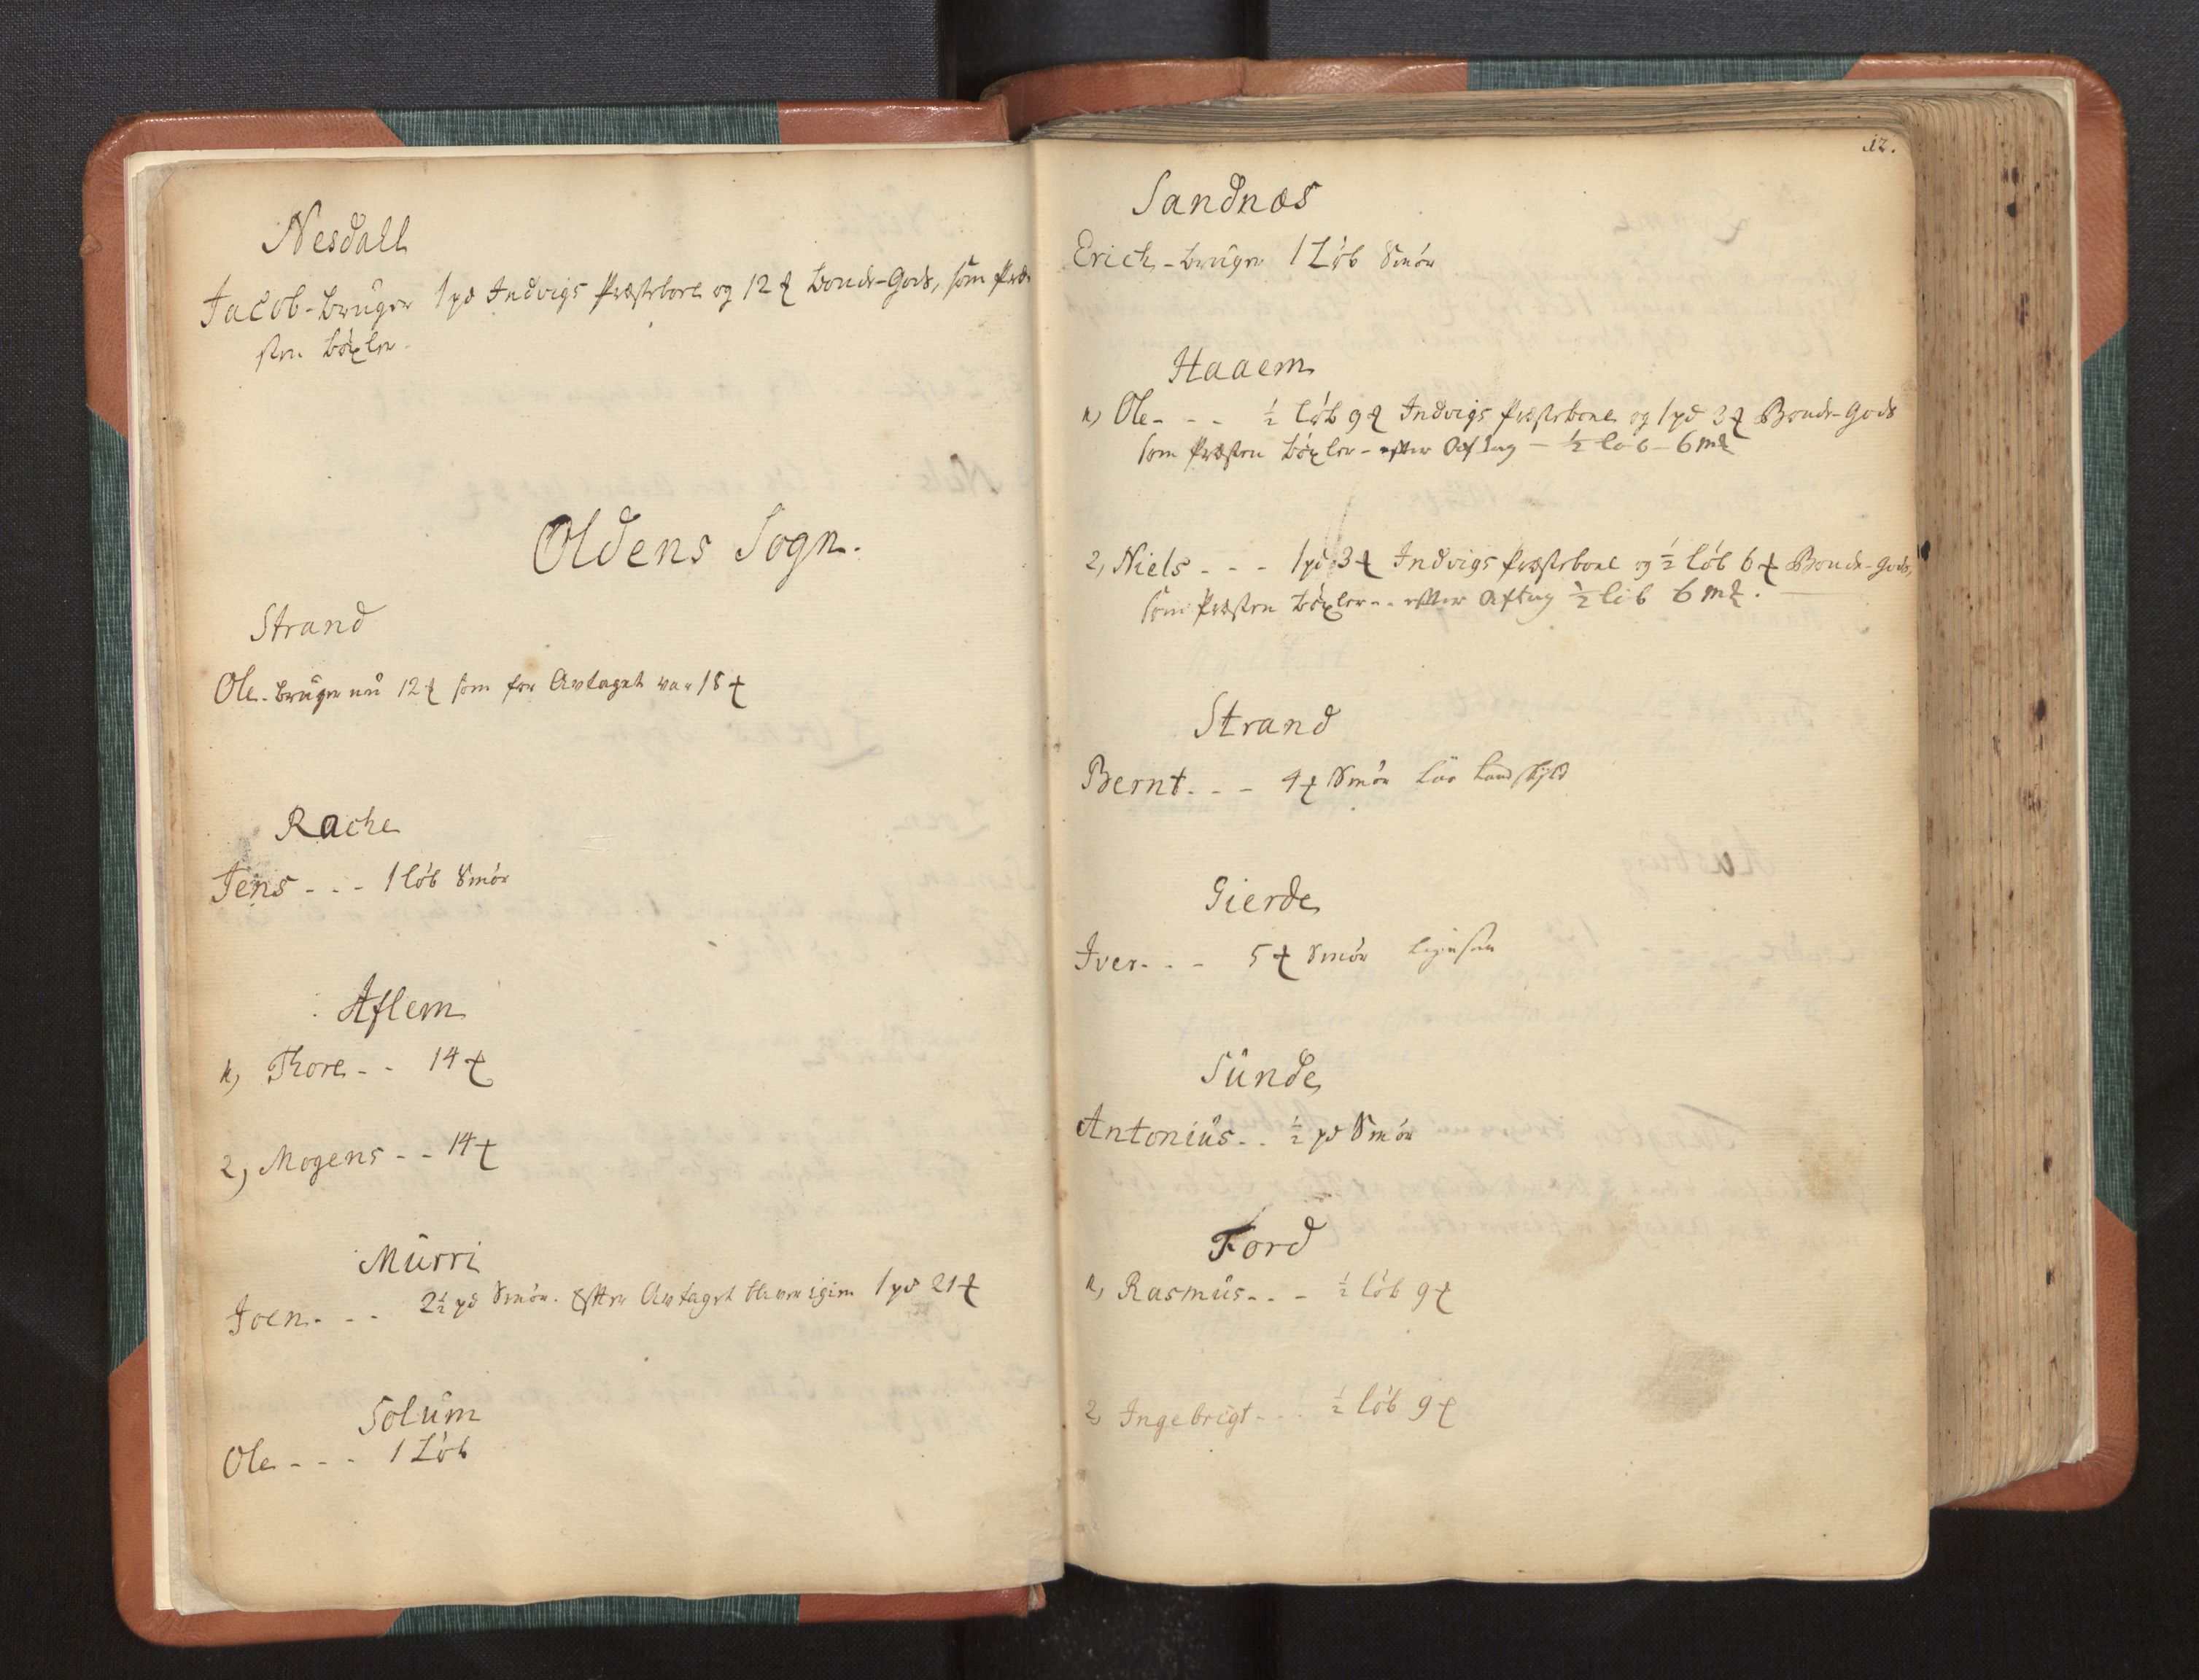 Nesdall
Jacob - bruger 1 pd Indvigs Præstebord og 12 ℔ bonde-Gods, som Præ-
sten böxler.
Oldens Sogn.
Strand
Ole - bruger nu 12 ℔ som før Avtaget var 18 ℔
Rache
Jens - - - 1 löb Smör
Aflem
1, Thore - - 14 ℔
2, Mogens - - 14 ℔
Murri
Joen - - - 2½ pd Smör. Efter Avtaget bliver igien 1 pd 21 ℔
Solum
Ole - - - 1 Löb
12.
Sandnæs
Erich - bruger 1 Löb Smör
Haaem
1, Ole - - - ½ löb 9 ℔ Indvigs Præstebord og 1 pd 3 ℔ Bonde-Gods
som Præsten böxler - efter Aftag - ½ löb - 6 m℔
2, Niels - - - 1 pd 3 ℔ Indvigs Præstebord og ½ löb 6 ℔ Bonde-Gods,
som Præsten böxler - - efter Aftag ½ löb 6 m℔.
Strand
Bernt - - - 4 ℔ Smör Landskyld
Gierde
Iver - - - 5 ℔ Smör
Sunde
Antonius - - ½ pd Smör
Ford
1, Rasmus - - - ½ löb 9 ℔
2, Ingebrigt - - - ½ löb 9 ℔